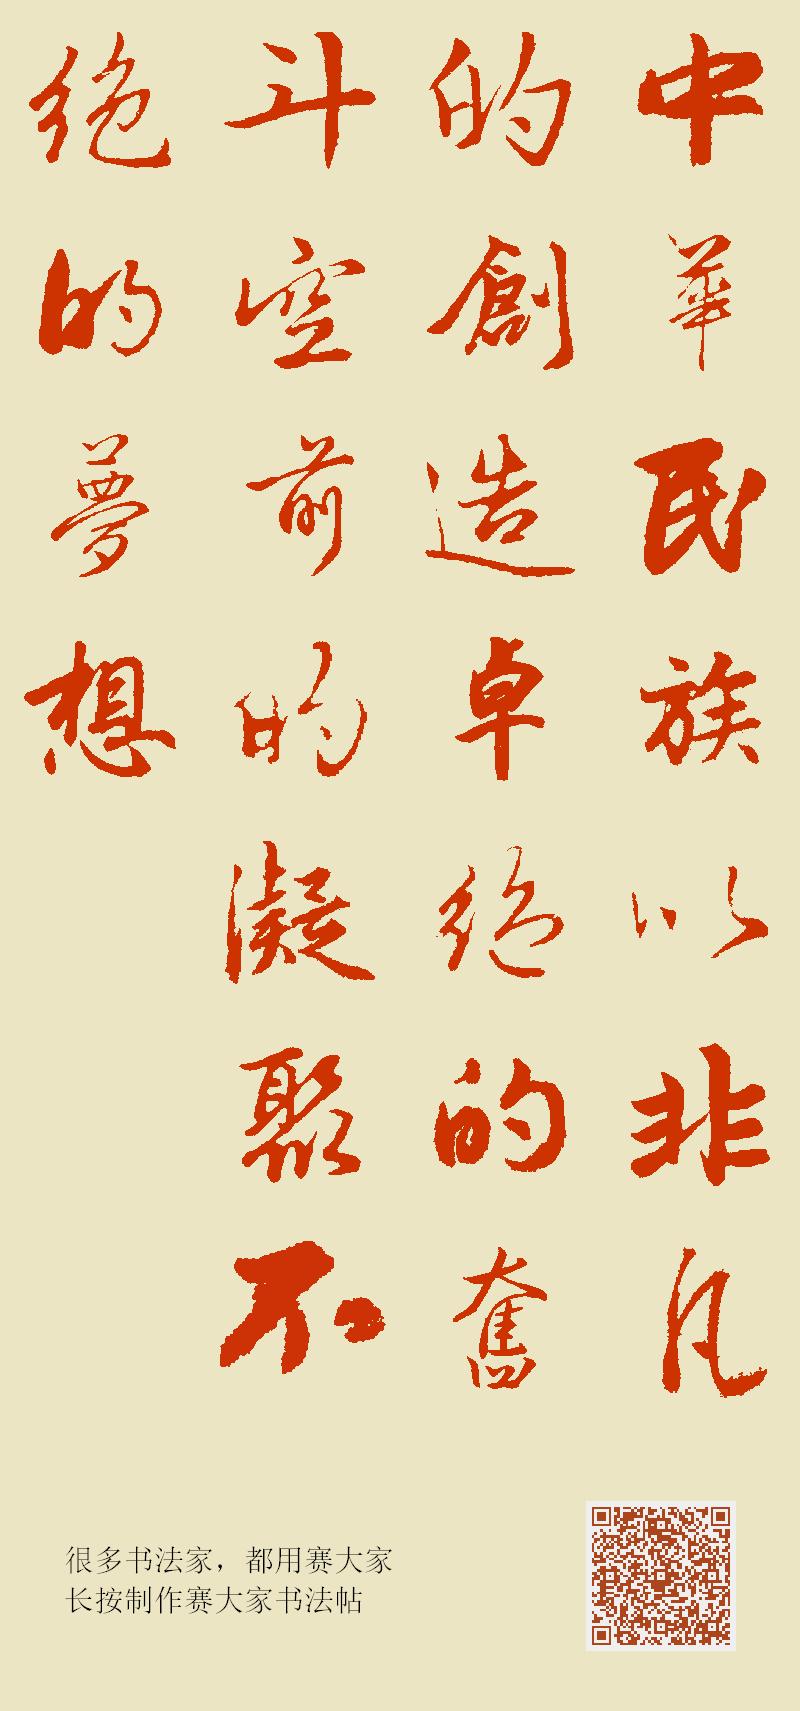 中華民族以非凡
的創造卓绝的奮
斗空前的凝聚不
绝的夢想
很多书法家，都用赛大家
长按制作赛大家书法帖